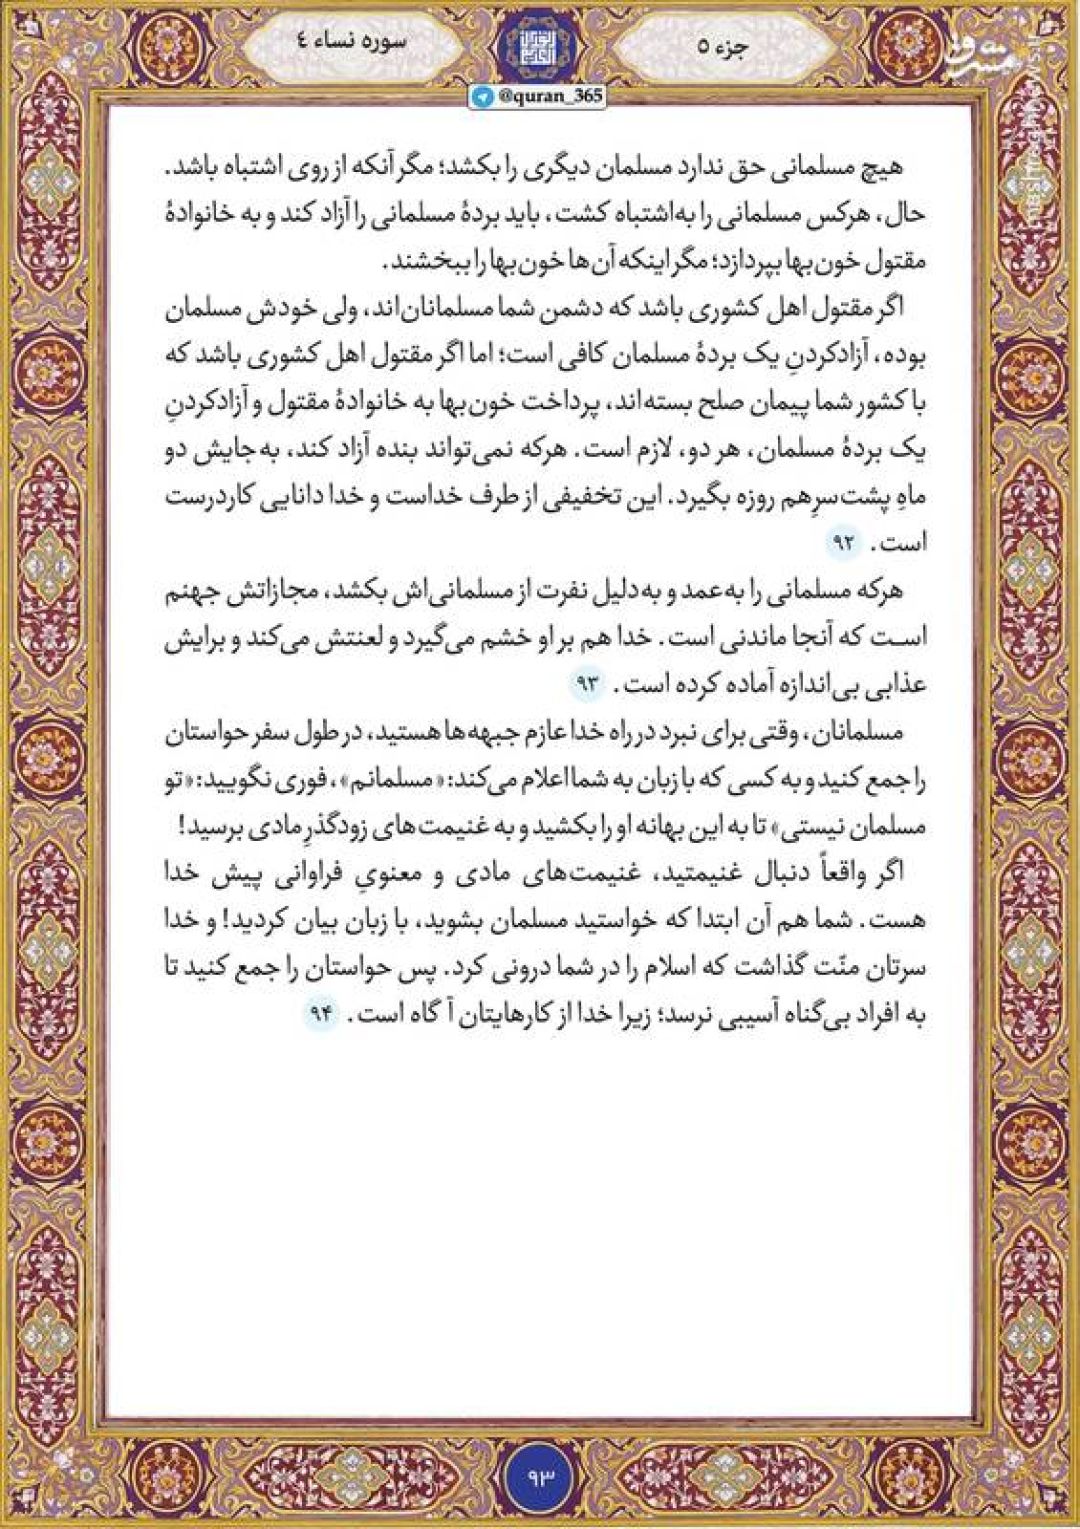 جزء ۵
سوره نساء ٤
@quran_365
مشرق
هیچ مسلمانی حق ندارد مسلمان دیگری را بکشد؛ مگر آنکه از روی اشتباه باشد.
حال، هرکس مسلمانی را به‌اشتباه کشت، باید بردهٔ مسلمانی را آزاد کند و به خانوادهٔ
مقتول خون‌بها بپردازد؛ مگر اینکه آن‌ها خون‌بها را ببخشند.
اگر مقتول اهل کشوری باشد که دشمن شما مسلمانان‌اند، ولی خودش مسلمان
بوده، آزادکردنِ یک بردهٔ مسلمان کافی است؛ اما اگر مقتول اهل کشوری باشد که
با کشور شما پیمان صلح بسته‌اند، پرداخت خون‌بها به خانوادهٔ مقتول و آزادکردنِ
یک بردهٔ مسلمان، هر دو، لازم است. هرکه نمی‌تواند بنده آزاد کند، به‌جایش دو
ماهِ پشت‌سرِهم روزه بگیرد. این تخفیفی از طرف خداست و خدا دانایی کاردرست
است. ۹۲
هرکه مسلمانی را به‌عمد و به‌دلیل نفرت از مسلمانی‌اش بکشد، مجازاتش جهنم
است که آنجا ماندنی است. خدا هم بر او خشم می‌گیرد و لعنتش می‌کند و برایش
عذابی بی‌اندازه آماده کرده است. ۹۳
مسلمانان، وقتی برای نبرد در راه خدا عازم جبهه‌ها هستید، در طول سفر حواستان
را جمع کنید و به کسی که با زبان به شما اعلام می‌کند: «مسلمانم»، فوری نگویید: «تو
مسلمان نیستی» تا به این بهانه او را بکشید و به غنیمت‌های زودگذرِ مادی برسید!
اگر واقعاً دنبال غنیمتید، غنیمت‌های مادی و معنویِ فراوانی پیش خدا
هست. شما هم آن ابتدا که خواستید مسلمان بشوید، با زبان بیان کردید! و خدا
سرتان منّت گذاشت که اسلام را در شما درونی کرد. پس حواستان را جمع کنید تا
به افراد بی‌گناه آسیبی نرسد؛ زیرا خدا از کارهایتان آ گاه است. ۹۴
۹۳